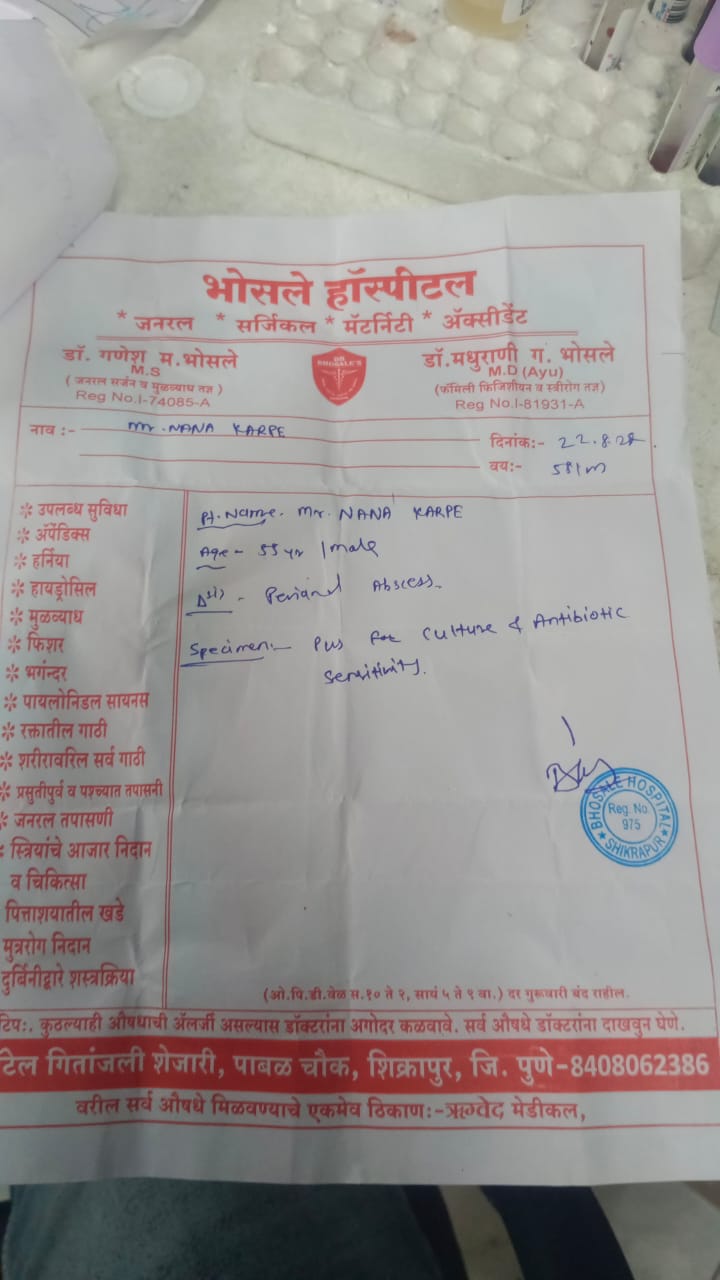 भोसले हॉस्पीटल
* जनरल * सर्जिकल * मॅटर्निटी * ॲक्सीडेंट
डॉ. गणेश म. भोसले
M.S
( जनरल सर्जन व मुळव्याध तज्ञ )
Reg No.I-74085-A
DR BHOSALE'S
डॉ. मधुराणी ग. भोसले
M.D (Ayu)
(फॅमिली फिजिशीयन व स्त्रीरोग तज्ञ)
Reg No.I-81931-A
नाव :- Mr. NANA KARPE
दिनांक:- 22.8.
वय:- /m
* उपलब्ध सुविधा
* ॲपेंडिक्स
* हर्निया
* हायड्रोसिल
* मुळव्याध
* फिशर
* भगंन्दर
* पायलोनिडल सायनस
* रक्तातील गाठी
* शरीरावरिल सर्व गाठी
* प्रसुतीपुर्व व पश्च्यात तपासनी
* जनरल तपासणी
* स्त्रियांचे आजार निदान
व चिकित्सा
पित्ताशयातील खडे
मुत्ररोग निदान
दुर्बिनीद्वारे शस्त्रक्रिया
Pt. Name. Mr. NANA KARPE
Age - 55 yr / male
Dsis - Perianal Abscess.
Specimen:- Pus for Culture & Antibiotic
Sensitivity.
BHOSALE HOSPITAL
Reg. No.
975
★ SHIKRAPUR ★
(ओ.पि.डी.वेळ स.१० ते २, सायं ५ ते ९ वा.) दर गुरूवारी बंद राहील.
टिप:. कुठल्याही औषधाची ॲलर्जी असल्यास डॉक्टरांना अगोदर कळवावे. सर्व औषधे डॉक्टरांना दाखवुन घेणे.
टेल गितांजली शेजारी, पाबळ चौक, शिक्रापुर, जि. पुणे-8408062386
वरील सर्व औषधे मिळवण्याचे एकमेव ठिकाण:-ऋग्वेद मेडीकल,